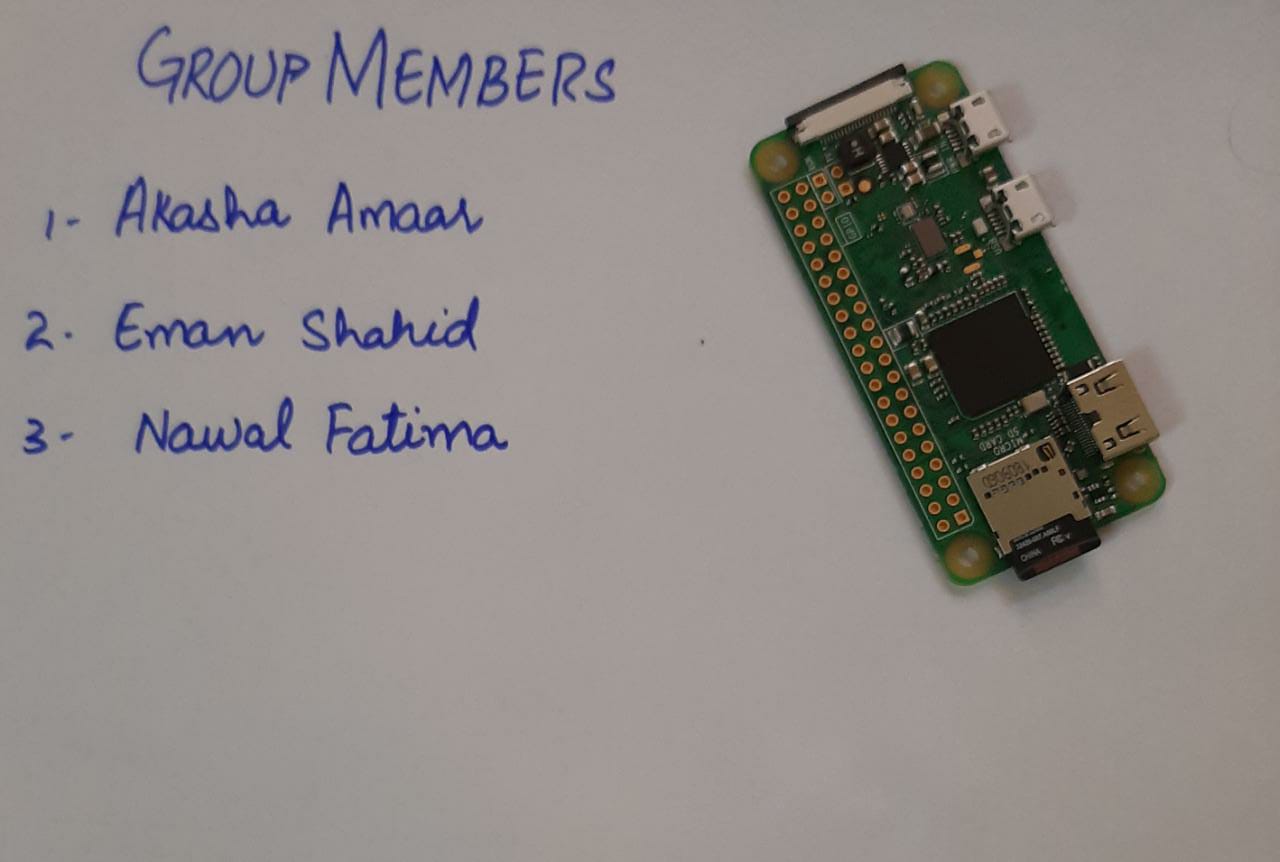 GROUP MEMBERS
1- Akasha Amaar
2. Eman Shahid
3- Nawal Fatima
GPIO
MICRO
SD CARD
CHINA